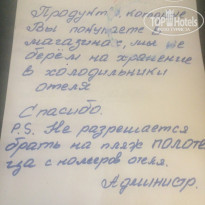 TopHotels
Продукты, которые
Вы покупаете в
магазинах, мы не
берём на хранение
в холодильники
отеля
Спасибо.
P.S. Не разрешается
брать на пляж полоте
нца с номеров отеля.
Администр.